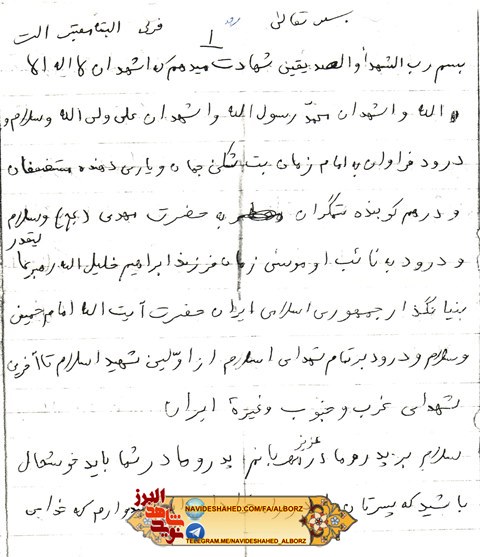 بسمه تعالی
بسم رب الشهدا و الصدیقین شهادت میدهم که اشهد ان لا اله الا
الله و اشهد ان محمد رسول الله و اشهد ان علی ولی الله و سلام و
درود فراوان به امام زمان بت شکن جهان و یاری دهنده مستضعفان
و درهم کوبنده ستمگران به حضرت مهدی (عج) و سلام
و درود به نائب او موسی زمان فرزند ابراهیم خلیل الله رهبر
بنیانگذار جمهوری اسلامی ایران حضرت آیت الله امام خمینی
و سلام و درود بر تمام شهدای اسلام از اولین شهید اسلام تا آخرین
شهدای غرب و جنوب و غیرة ایران
سلام بر پدر و مادر عزیز پدر و مادر شما باید خوشحال
باشید که پسرتان که خدایی
البرز
NAVIDESHAHED.COM/FA/ALBORZ
TELEGRAM.ME/NAVIDESHAHED_ALBORZ